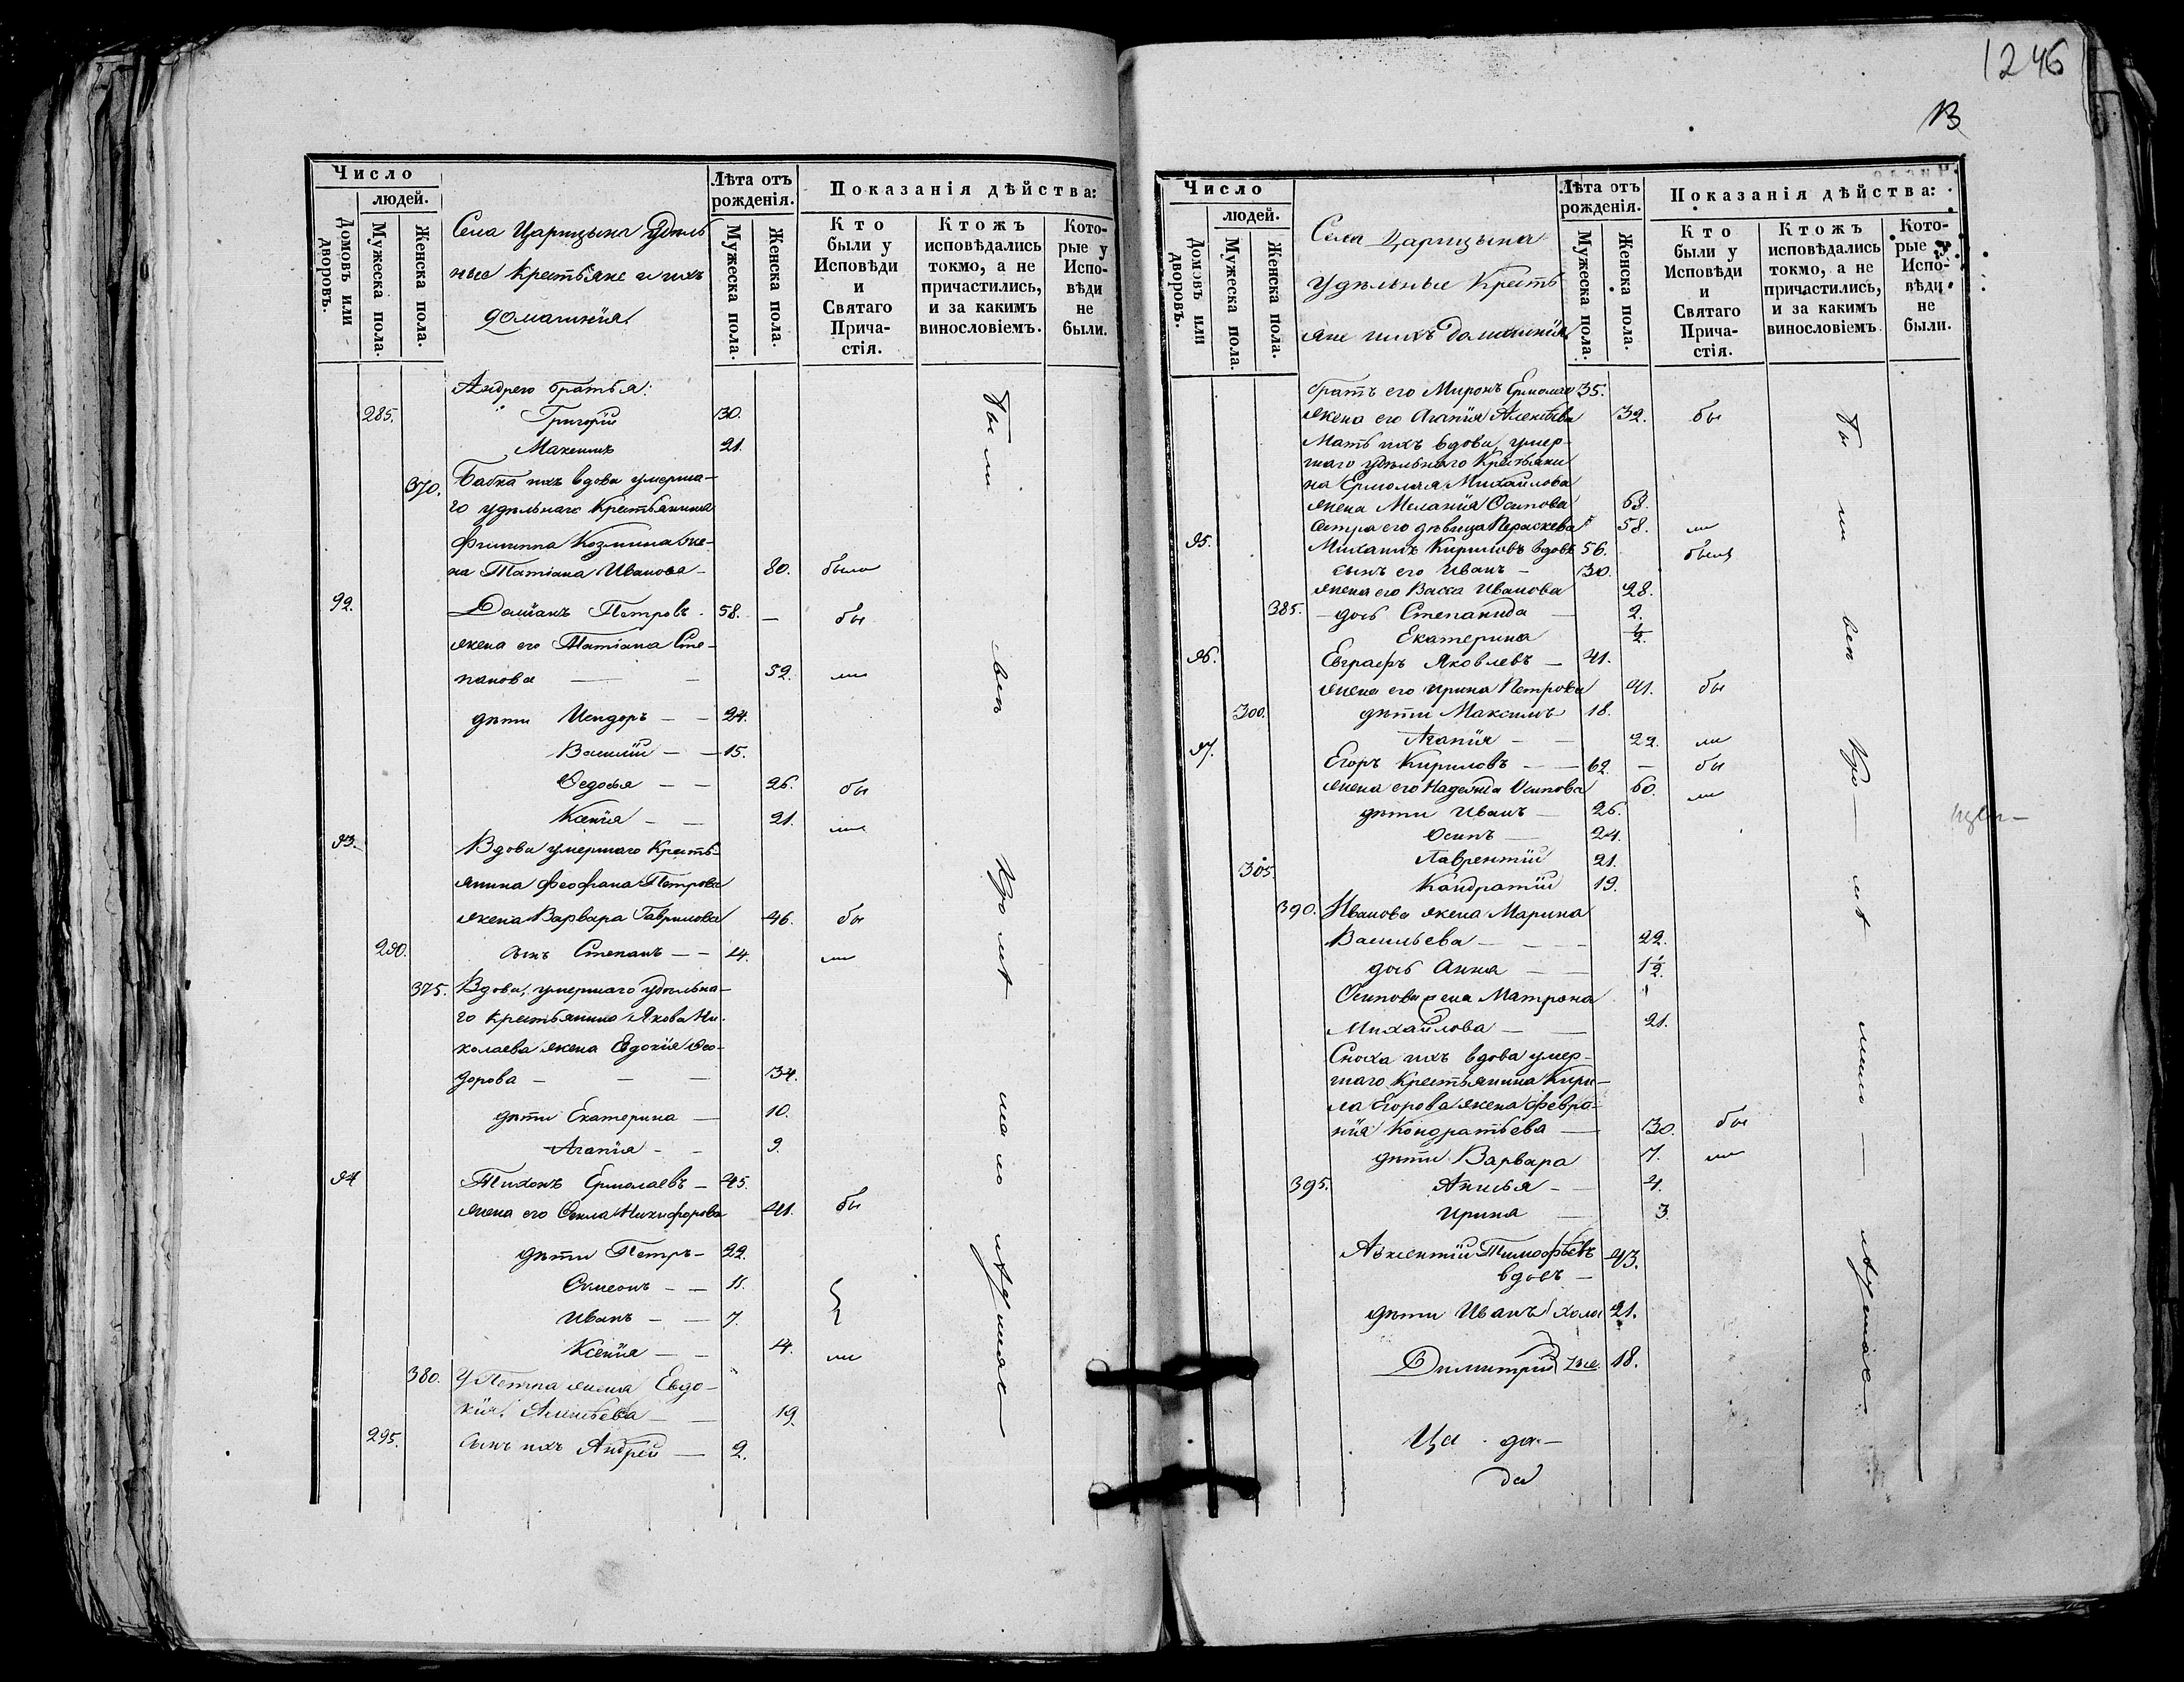 1246
13
Число
людей.
Домовъ или дворовъ.
Мужеска пола.
Женска пола.
Села Царицына Удѣль
ные Крестьяне и ихъ
домашнія.
Лѣта отъ рожденія.
Мужеска пола.
Женска пола.
Показанія дѣйства:
Кто были у Исповѣди и Святаго Причастія.
Ктожъ исповѣдались токмо, а не причастились, и за какимъ винословіемъ.
Которые у Исповѣди не были.
Андрею братья:
285. Григорій 30.
Максимъ 21.
370. Бабка ихъ вдова умерша-
го удѣльнаго Крестьянина
Филиппа Козмина же-
на Татіана Иванова 80. была
92. Даміанъ Петровъ 58. — бы
жена его Татіана Сте-
панова 52. ли
дѣти Исидоръ 24.
Василій 15.
Ѳедосья 26. бы
Ксенія 21. ли
93. Вдова умершаго Кресть-
янина Феофана Петрова
жена Варвара Гаврилова 46. бы
290. сынъ Степанъ 14. ли
375. Вдова, умершаго удѣльна-
го крестьянина Якова Ни-
колаева жена Евдокія Ѳео-
дорова 34.
дѣти Екатерина 10.
Агапія 9.
94 Тихонъ Ермолаевъ 45.
жена его Ѳекла Никифорова 41. бы
дѣти Петръ 22.
Симеонъ 11.
Иванъ 7.
Ксенія 14. ли
380. У Петра жена Евдо-
кія 19.
295. Сынъ ихъ Андрей 2.
Число
людей.
Домовъ или дворовъ.
Мужеска пола.
Женска пола.
Села Царицына
Удѣльные Кресть
яне и ихъ домашнія
Лѣта отъ рожденія.
Мужеска пола.
Женска пола.
Показанія дѣйства:
Кто были у Исповѣди и Святаго Причастія.
Ктожъ исповѣдались токмо, а не причастились, и за какимъ винословіемъ
Которые у Исповѣди не были.
братъ его Миронъ Ермолае 35.
жена его Агапія Алексѣева 32. бы
Мать ихъ вдова, умер-
шаго удѣльнаго Крестьяни
на Ермолая Михайлова
жена Меланія Осипова 63.
Сестра его дѣвица Параскева 58. ли
95. Михаилъ Кириловъ вдовъ 56. былъ
сынъ его Иванъ 30.
жена его Васса Иванова 28.
385. дочь Степанида 2.
Екатерина ½.
96. Евграфъ Яковлевъ 41.
жена его Ирина Петрова 41. бы
300. дѣти Максимъ 18.
Агапія 22. ли
97. Егоръ Кириловъ 62. — бы
жена его Надежда Осипова 60. ли
дѣти Иванъ 26.
Осипъ 24.
305. Лаврентій 21.
Кондратій 19.
390. Иванова жена Марина
Васильева 22.
дочь Анна 1½.
Осипова жена Матрона
Михайлова 21.
Сноха ихъ вдова умер-
шаго Крестьянина Кири-
ла Егорова жена Февро-
нія Кондратьева 30. бы
дѣти Варвара 7. ли
395. Акилья 4.
Ирина 3.
Авксентій Тимофѣевъ 43.
вдовъ
дѣти Иванъ холо 21.
Димитрій 18.